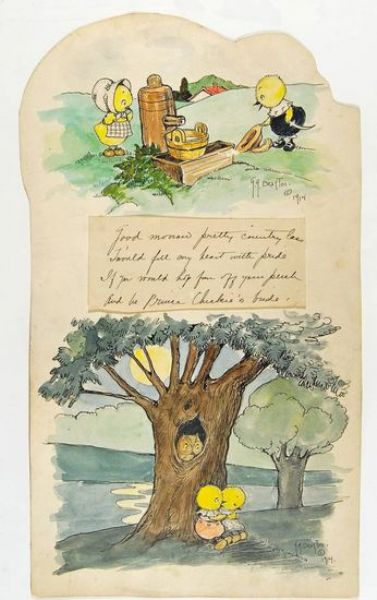 © 1914
Good morrow pretty country lass
Twould fill my heart with pride
If you would hop from off your perch
And be Prince Chickie's bride.
© 1914